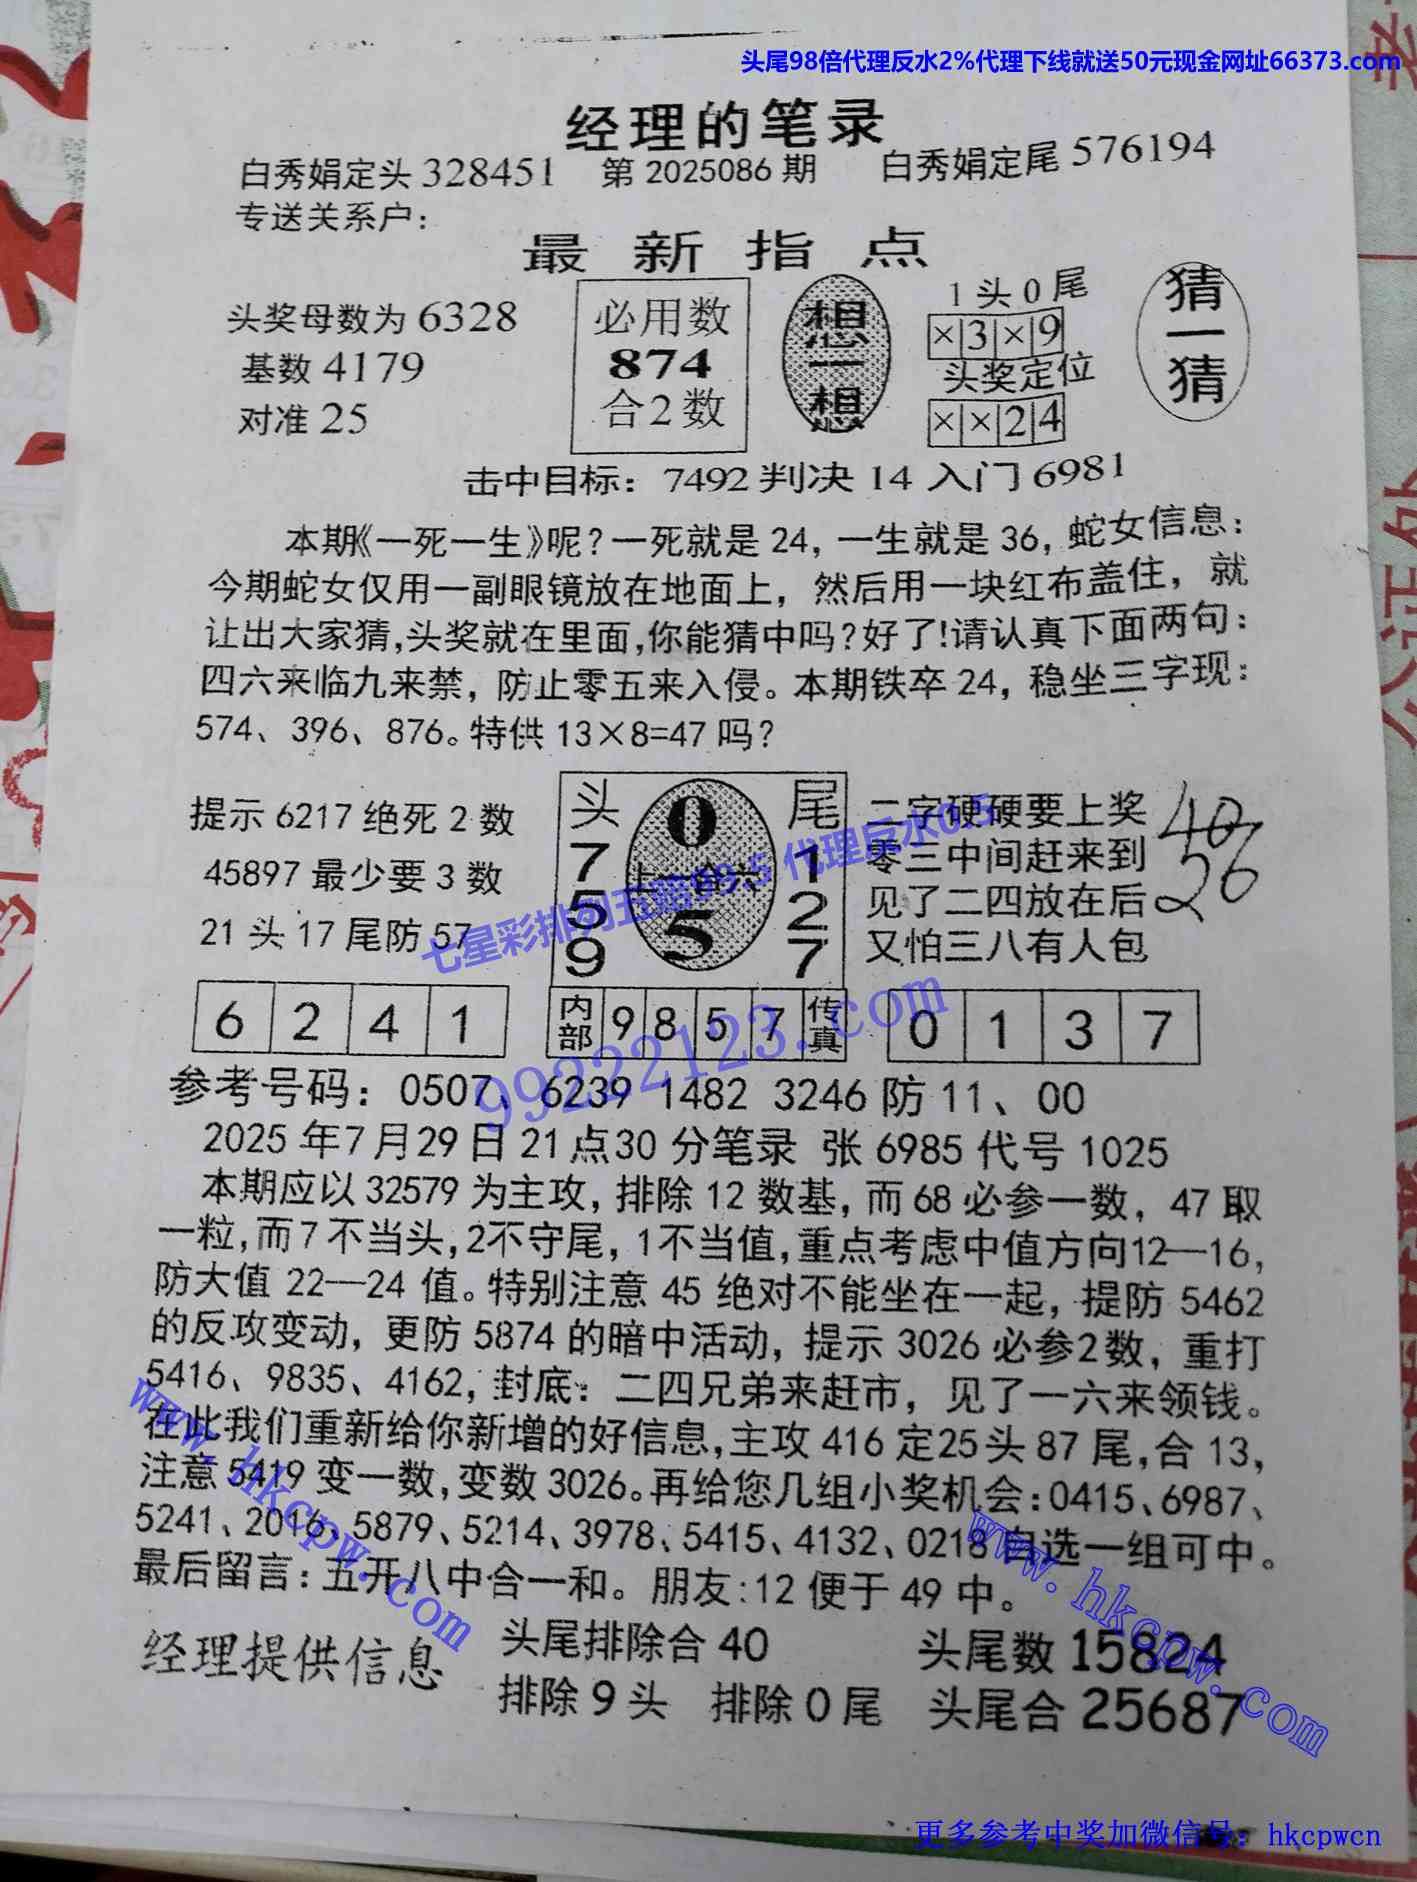 头尾98倍代理反水2%代理下线就送50元现金网址66373.com
经理的笔录
白秀娟定头 328451 第 2025086 期 白秀娟定尾 576194
专送关系户：
最新指点
头奖母数为 6328
基数 4179
对准 25
必用数
874
合2数
想一想
1 头 0 尾
×3×9
头奖定位
××24
猜一猜
击中目标：7492 判决 14 入门 6981
本期《一死一生》呢？一死就是 24，一生就是 36，蛇女信息：
今期蛇女仅用一副眼镜放在地面上，然后用一块红布盖住，就
让出大家猜，头奖就在里面，你能猜中吗？好了！请认真下面两句：
四六来临九来禁，防止零五来入侵。本期铁卒 24，稳坐三字现：
574、396、876。特供 13×8=47 吗？
提示 6217 绝死 2 数
45897 最少要 3 数
21 头 17 尾防 57
头 0 尾
7 1
5 2
9 5 7
二字硬硬要上奖
零三中间赶来到
见了二四放在后
又怕三八有人包
40
26
七星彩排列五赔99.5 代理反水0.5
6 2 4 1
内部 9 8 5 7 传真
0 1 3 7
99222123.com
参考号码：0507、6239 1482 3246 防 11、00
2025 年 7 月 29 日 21 点 30 分笔录 张 6985 代号 1025
本期应以 32579 为主攻，排除 12 数基，而 68 必参一数，47 取
一粒，而 7 不当头，2不守尾，1不当值，重点考虑中值方向12—16，
防大值 22—24 值。特别注意 45 绝对不能坐在一起，提防 5462
的反攻变动，更防 5874 的暗中活动，提示 3026 必参2数，重打
5416、9835、4162，封底：二四兄弟来赶市，见了一六来领钱。
在此我们重新给你新增的好信息，主攻 416 定25头 87 尾，合 13，
注意 5419 变一数，变数 3026。再给您几组小奖机会：0415、6987、
5241、2016、5879、5214、3978、5415、4132、0218 自选一组可中。
最后留言：五开八中合一和。朋友：12 便于 49 中。
www.hkcpw.com
www.hkcpw.com
经理提供信息
头尾排除合 40
头尾数 15824
排除 9 头 排除 0 尾
头尾合 25687
更多参考中奖加微信号：hkcpwcn